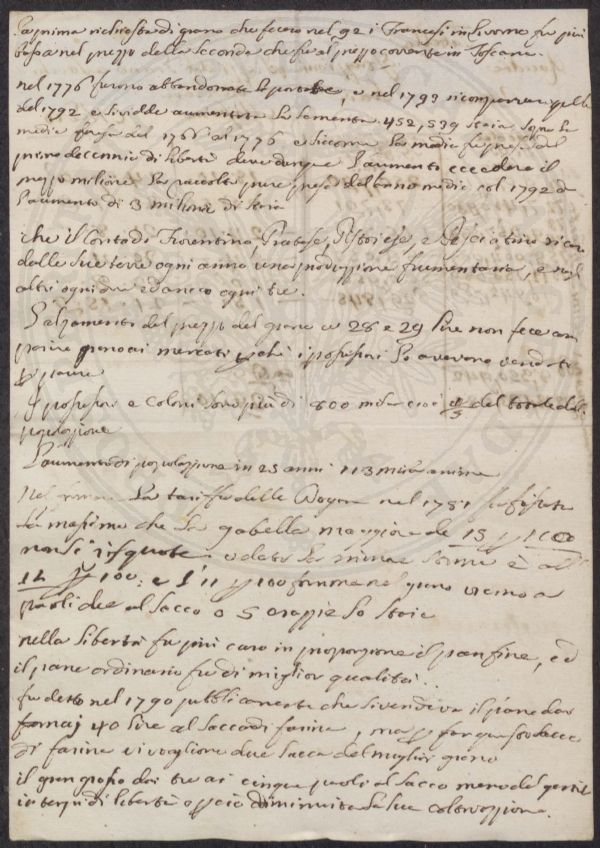 La prima richiesta di grano che fecero nel 92 i Francesi in Livorno fu più
bassa nel prezzo della seconda che fu al prezzo corrente in Toscana.
nel 1776 furono abbandonate le portate, e nel 1793 ricomparvero quelle
del 1792 e si vidde aumentata la sementa 452,539 staia sopra la
media presa dal 1768 al 1776 e siccome la media fu presa dal
primo decennio di libertà deve dunque l'aumento eccedere il
mezzo milione. La raccolta pure presa dell'anno medio col 1792 dà
l'aumento di 3 milioni di staia
che il Contado Fiorentino, Pratese, Pistoiese, e Pesciatino ricava
dalle sue terre ogni anno una produzione frumentaria, e negl'
altri ogni due ed anco ogni tre.
L'alzamento del prezzo del grano a 28 e 29 lire non fece com
parire grano ai mercati perchè i possessori lo avevano venduto
Possessori e Coloni sono più di 800 mila cioè 4/5 del totale della
popolazione
L'aumento di popolazione in 25 anni 113 mila anime
Nel formare la tariffa delle Dogane nel 1781 fu fissata
la massima che la gabella maggiore de 15 per 100
non si risquote e data la minae somme è al
12 per 100: e l'11 per 100 forma nel grano vicino a
paoli due al sacco o 5 crazie lo staio
nella libertà fu più caro in proporzione il pan fine, ed
il pane ordinario fu di miglior qualità.
fu detto nel 1790 pubblicamente che si vendeva il pane dai
fornaj 40 lire al sacco di farina, ma per far questo sacco
di farina vi vogliono due sacca del miglior grano
il gran grosso dai tre ai cinque paoli al sacco meno del gentil
in tempi di libertà e perciò diminuita la sua coltivazione.